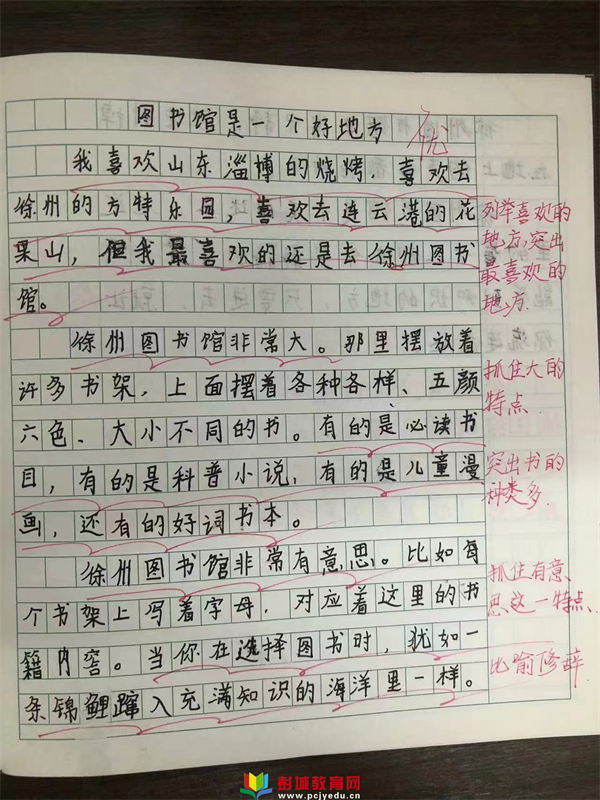 图书馆是一个好地方
优
我喜欢山东淄博的烧烤，喜欢去
徐州的方特乐园，喜欢去连云港的花
果山，但我最喜欢的还是去徐州图书
馆。
列举喜欢的
地方，突出
最喜欢的
地方.
徐州图书馆非常大。那里摆放着
许多书架，上面摆着各种各样、五颜
六色、大小不同的书。有的是必读书
目，有的是科普小说，有的是儿童漫
画，还有的好词书本。
抓住大的
特点
突出书的
种类多.
徐州图书馆非常有意思。比如每
个书架上写着字母，对应着这里的书
籍内容。当你在选择图书时，犹如一
条锦鲤蹿入充满知识的海洋里一样。
抓住有意
思这一特点、
比喻修辞.
彭城教育网
www.pcjyedu.cn